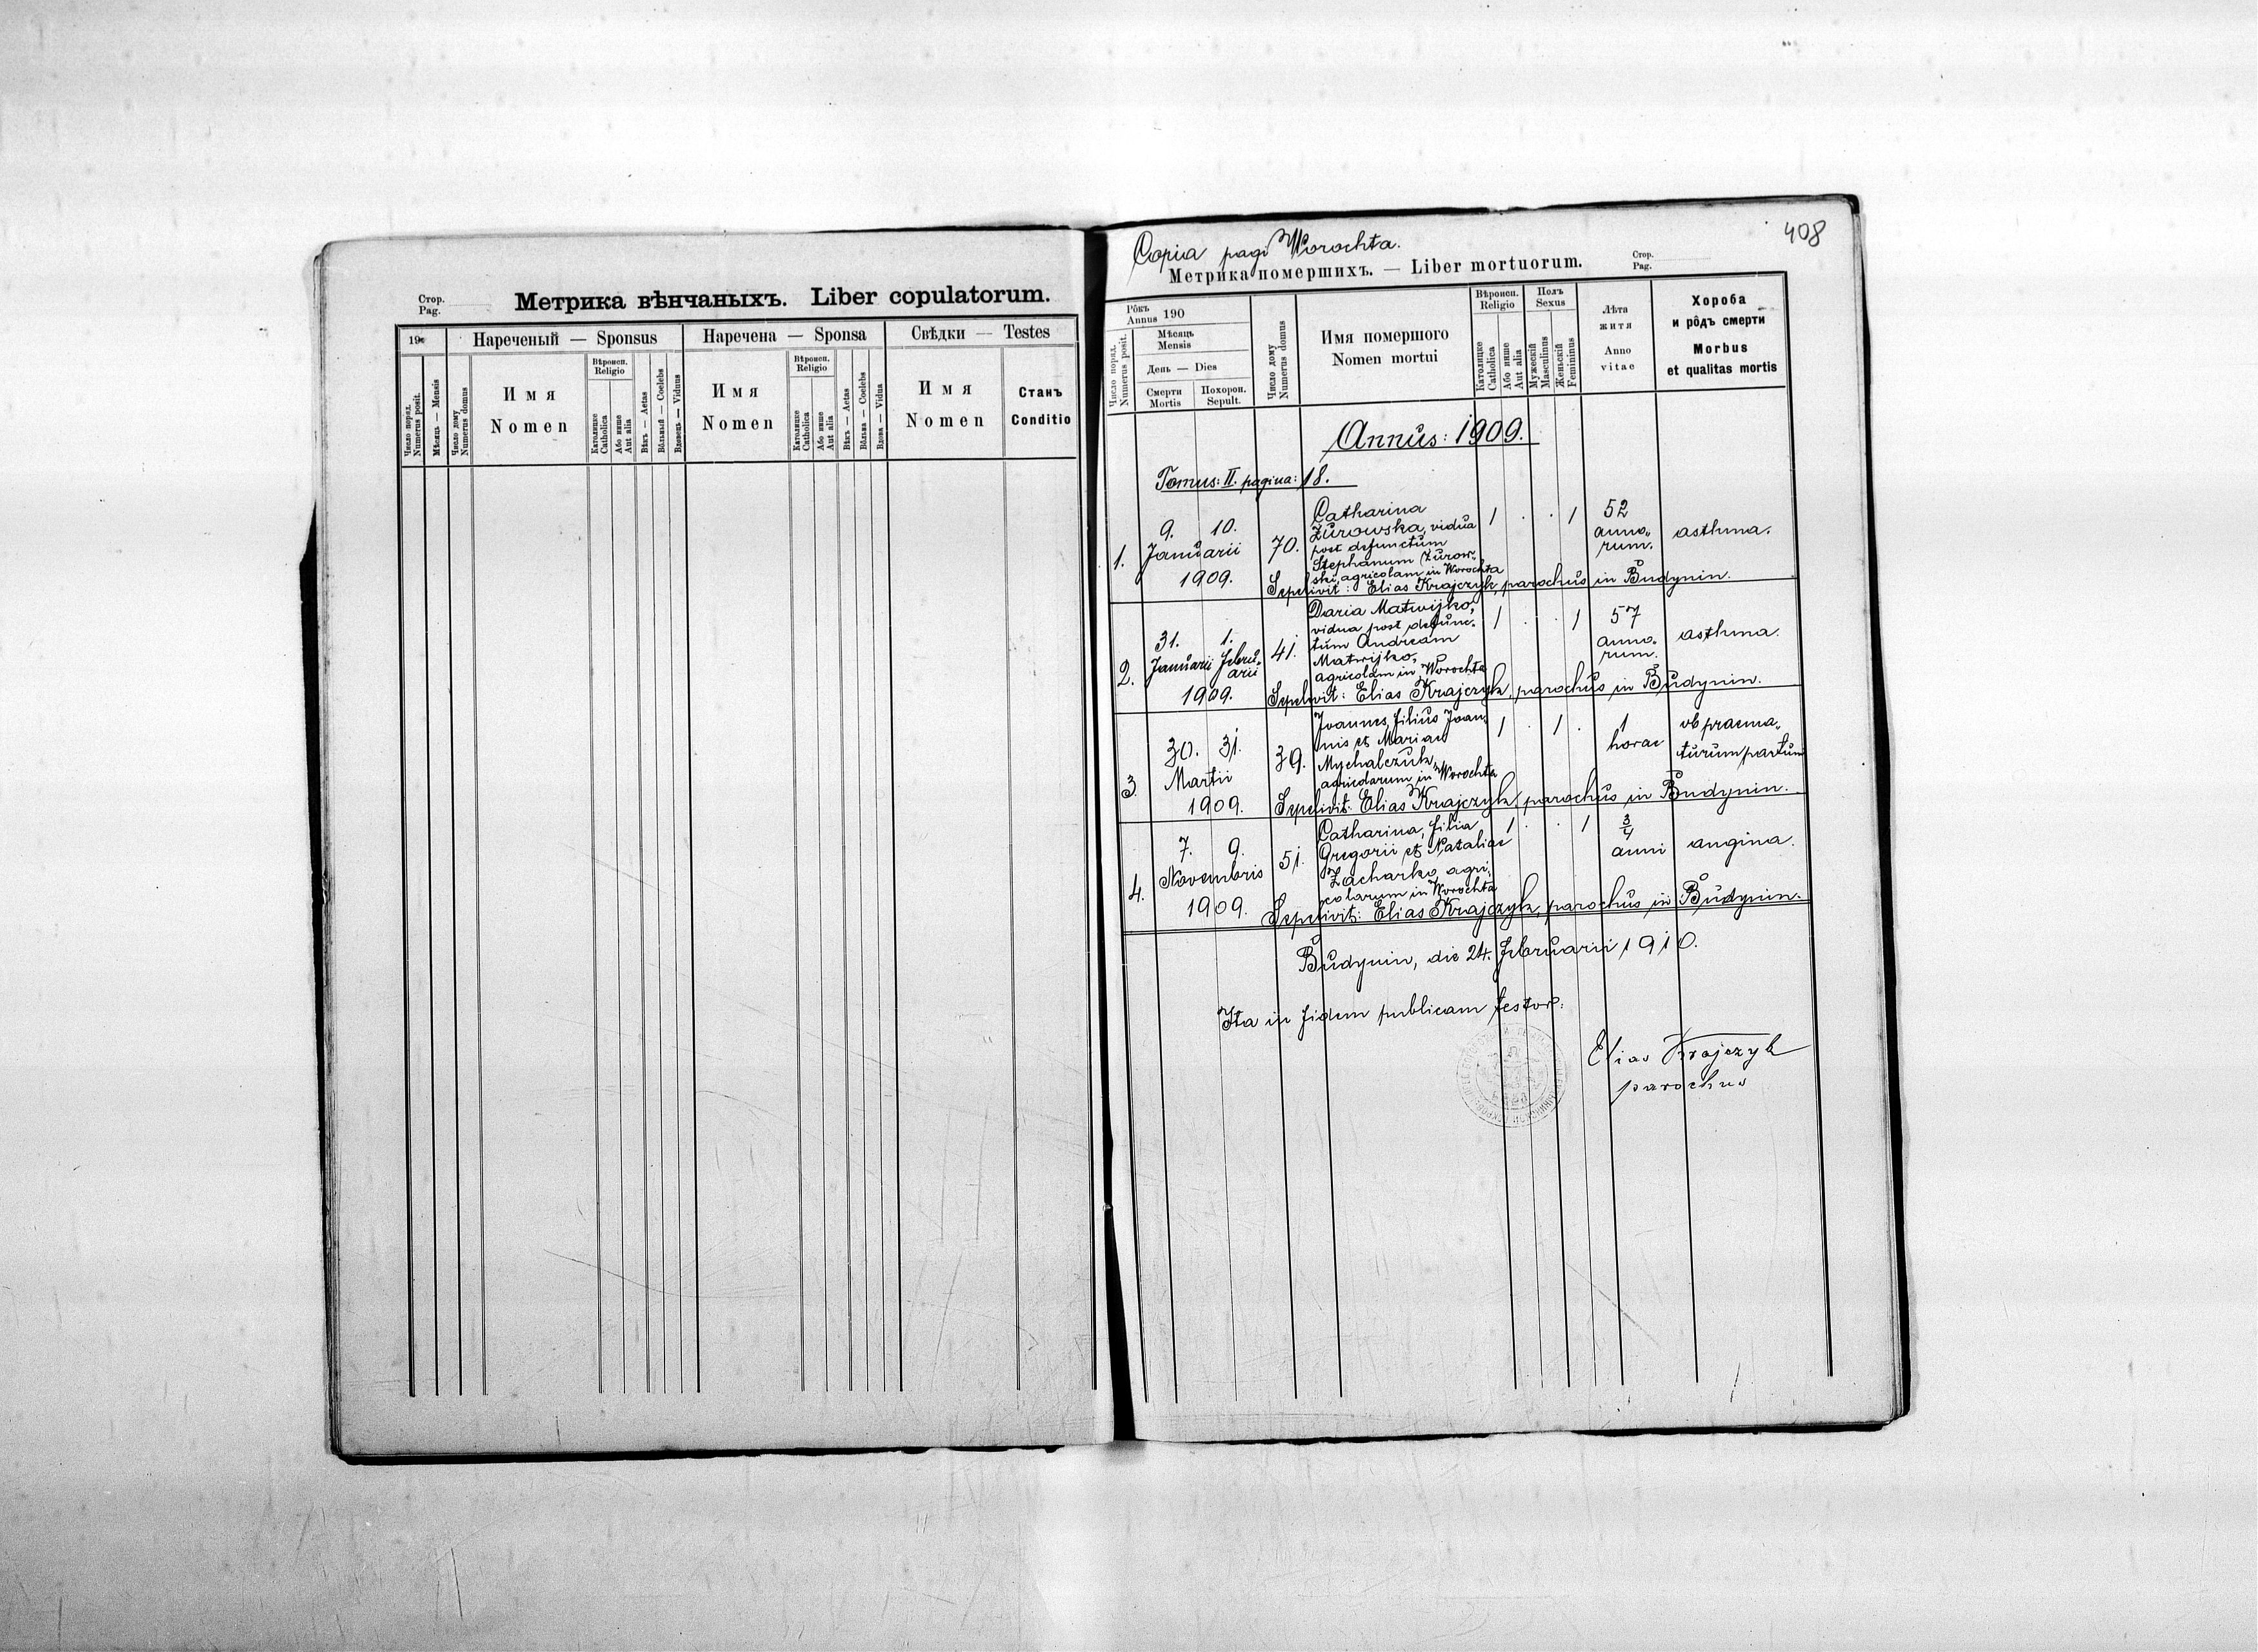 Стор.
Pag.
Метрика вѣнчаныхъ. Liber copulatorum.
19
Нареченый — Sponsus
Наречена — Sponsa
Свѣдки — Testes
Число поряд.
Numerus posit.
Мѣсяць — Mensis
Число дому
Numerus domus
Имя
Nomen
Вѣроисп.
Religio
Католицке
Catholica
Або инше
Aut alia
Вѣкъ — Aetas
Вôльный — Coelebs
Вдовець — Viduus
Имя
Nomen
Вѣроисп.
Religio
Католицке
Catholica
Або инше
Aut alia
Вѣкъ — Aetas
Вôльна — Coelebs
Вдова — Vidua
Имя
Nomen
Станъ
Conditio
408
Copia pagi Worochta.
Метрика помершихъ. — Liber mortuorum.
Стор.
Pag.
Число поряд.
Numerus posit.
Рôкъ
Annus 190
Мѣсяць
Mensis
День — Dies
Смерти
Mortis
Похорон.
Sepult.
Число дому
Numerus domus
Имя помершого
Nomen mortui
Вѣроисп.
Religio
Католицке
Catholica
Або инше
Aut alia
Полъ
Sexus
Мужескій
Masculinus
Женьскій
Femininus
Лѣта
житя
Anno
vitae
Хороба
и рôдъ смерти
Morbus
et qualitas mortis
Annus: 1909.
Tomus: II. pagina: 18.
1. 9. 10.
Januarii
1909.
70.
Catharina
Żurowska, vidua
post defunctum
Stephanum Żurow„
ski, agricolam in Worochta
1 . . 1
52
anno„
rum.
asthma.
Sepelivit: Elias Krajczyk, parochus in Budynin.
2. 31. 1.
Januarii Febru„
arii
1909.
41.
Daria Matwijko,
vidua post defunc„
tum Andream
Matwijko,
agricolam in Worochta
1 . . 1
57
anno„
rum.
asthma.
Sepelivit: Elias Krajczyk, parochus in Budynin.
3. 30. 31.
Martii
1909.
39.
Joannes, filius Joan„
nis et Mariae
Mychalczuk,
agricolarum in Worochta
1 . 1 .
1
horae
ob praema„
turum partum
Sepelivit: Elias Krajczyk, parochus in Budynin.
4. 7. 9.
Novembris
1909.
51.
Catharina, filia
Gregorii et Nataliae
Zacharko, agri„
colarum in Worochta
1 . . 1
3/4
anni
angina.
Sepelivit: Elias Krajczyk, parochus in Budynin.
Budynin, die 24. Februarii 1910.
Ita in fidem publicam testor:
Elias Krajczyk
parochus